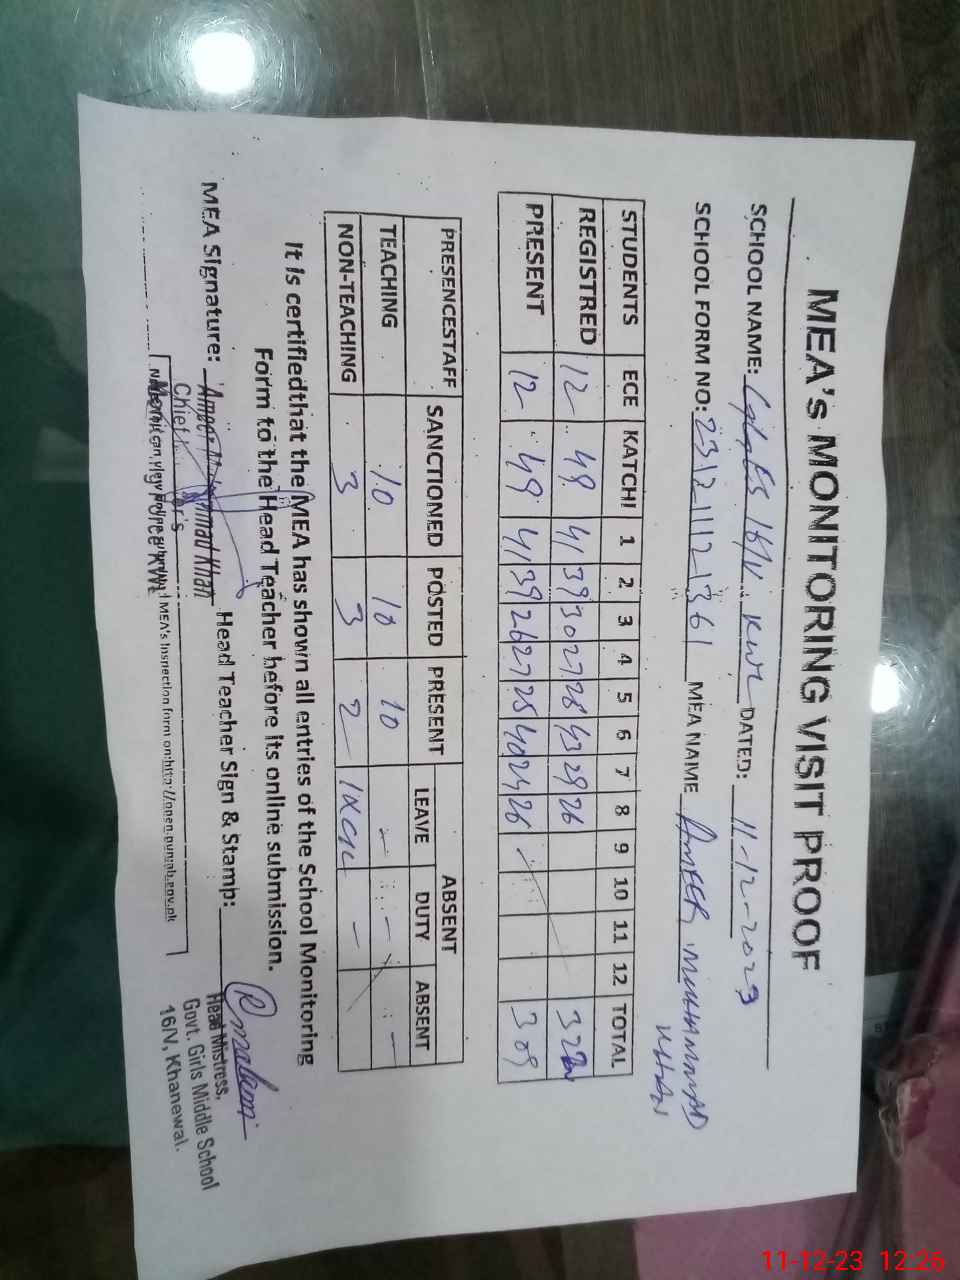 MEA's MONITORING VISIT PROOF
SCHOOL NAME: 16/V KWL DATED: 11-12-2023
SCHOOL FORM NO: 231211121361 MEA NAME AMEER MUHAMMAD KHAN
STUDENTS ECE KATCHI 1 2 3 4 5 6 7 8 9 10 11 12 TOTAL
REGISTRED 12 49 41 39 30 27 28 43 29 26
PRESENT 12 49 41 39 26 27 25 40 24 26 309
PRESENCESTAFF SANCTIONED POSTED PRESENT ABSENT
LEAVE DUTY ABSENT
TEACHING 10 10 10 - - -
NON-TEACHING 3 3 2 -
It is certifiedthat the MEA has shown all entries of the School Monitoring
Form to the Head Teacher before its online submission.
MEA Signature: Head Teacher Sign & Stamp:
Ameer Muhammad Khan
Chief
Head Mistress,
Govt. Girls Middle School
16/V, Khanewal.
MEA's Inspection form on:http://open.punjab.gov.pk
11-12-23 12:26